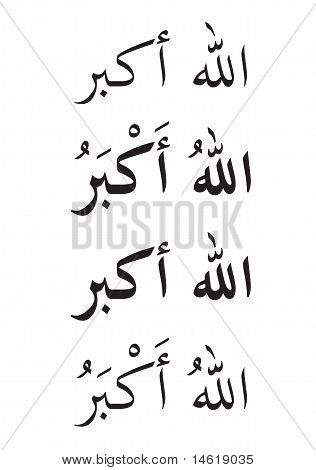 الله أكبر
اللهُ أَكْبَرُ
الله أكبر
اللهُ أَكْبَرُ
bigstock
www.bigstock.com · 14619035